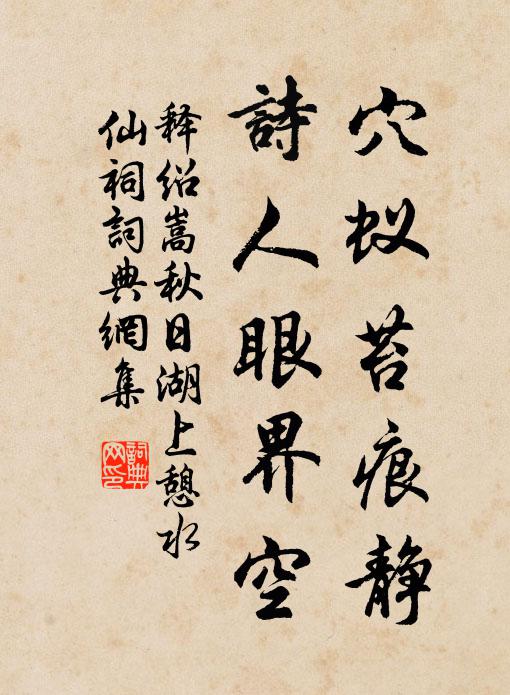 穴蚁苔痕静
詩人眼界空
释绍嵩秋日湖上憩水
仙祠詞典網集
詞典网印